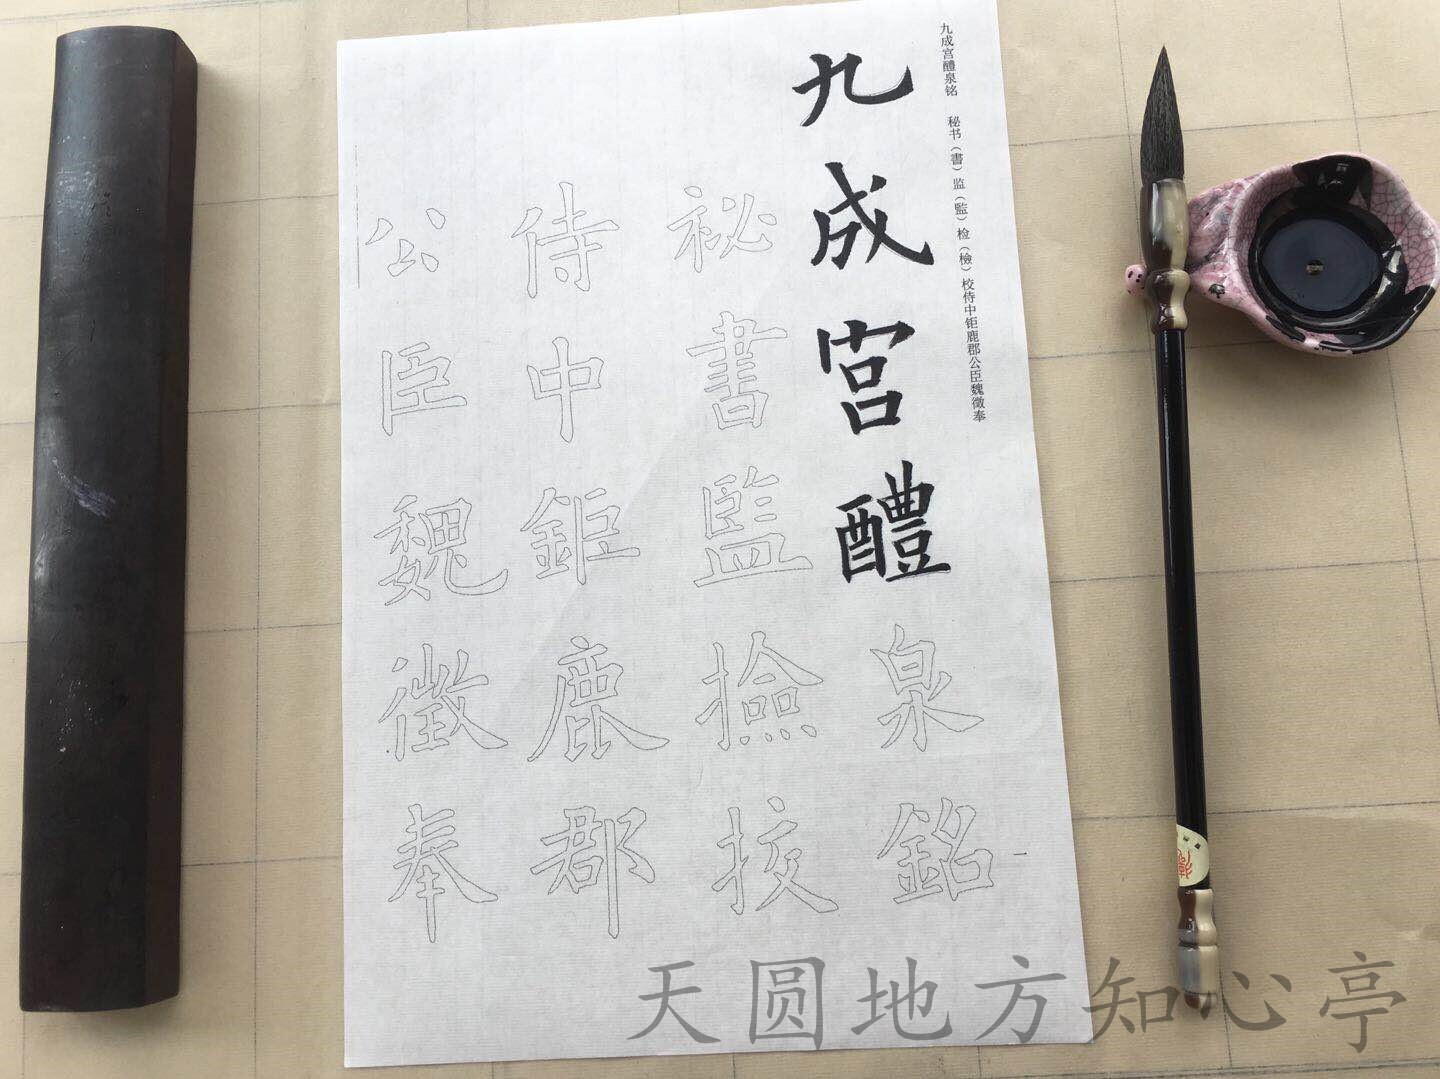 九成宫醴泉铭 秘书（書）监（監）检（檢）校侍中钜鹿郡公臣魏徵奉
九成宫醴泉銘
祕書監撿挍
侍中鉅鹿郡
公臣魏徵奉
一
天圆地方知心亭